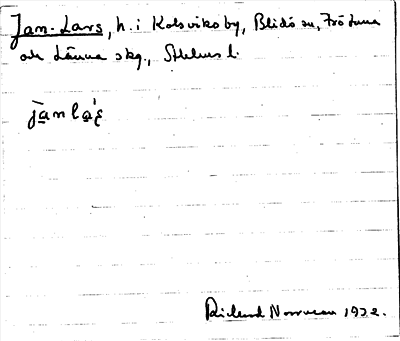 Jan-Lars, h. i Kolsviks by, Blidö sn, Frötuna
och Länna skg., Sthlms l.
ja̲nla̲'s̨
Rickard Norrman 1932.